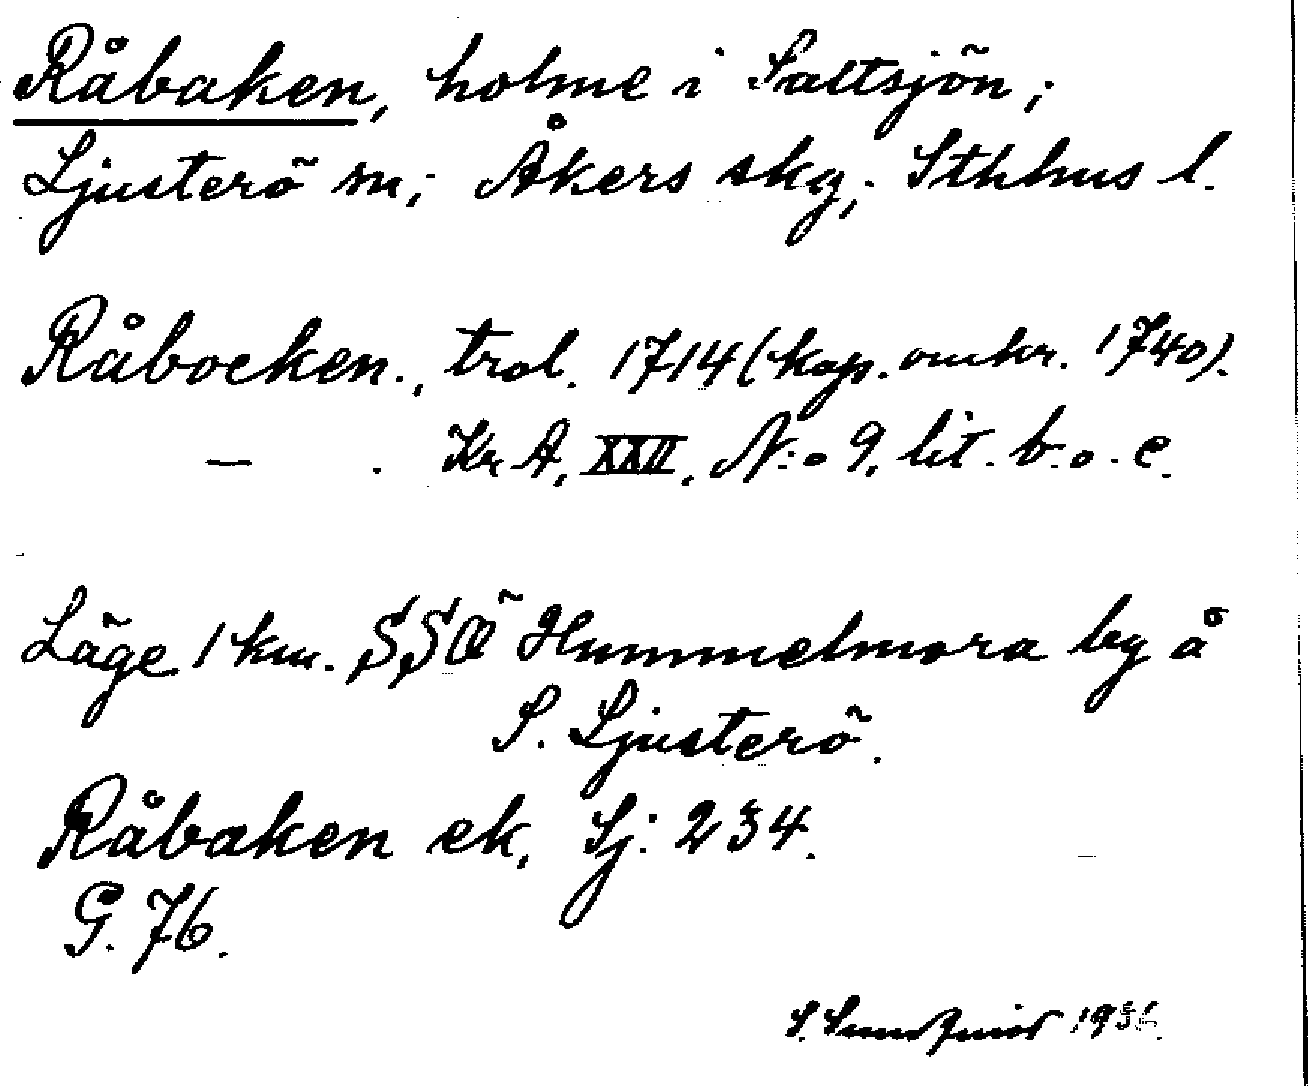 Råbaken, holme i Saltsjön;
Ljusterö sn; Åkers skg; Sthlms l.
Råbocken., trol. 1714 (kop. omkr. 1740).
— . Kr A, XXII, N:o 9, lit. b. o. c.
Läge 1 km. SSÖ Hummelmora by å
S. Ljusterö.
Råbaken ek, Sj: 234.
G. 76.
S. 193